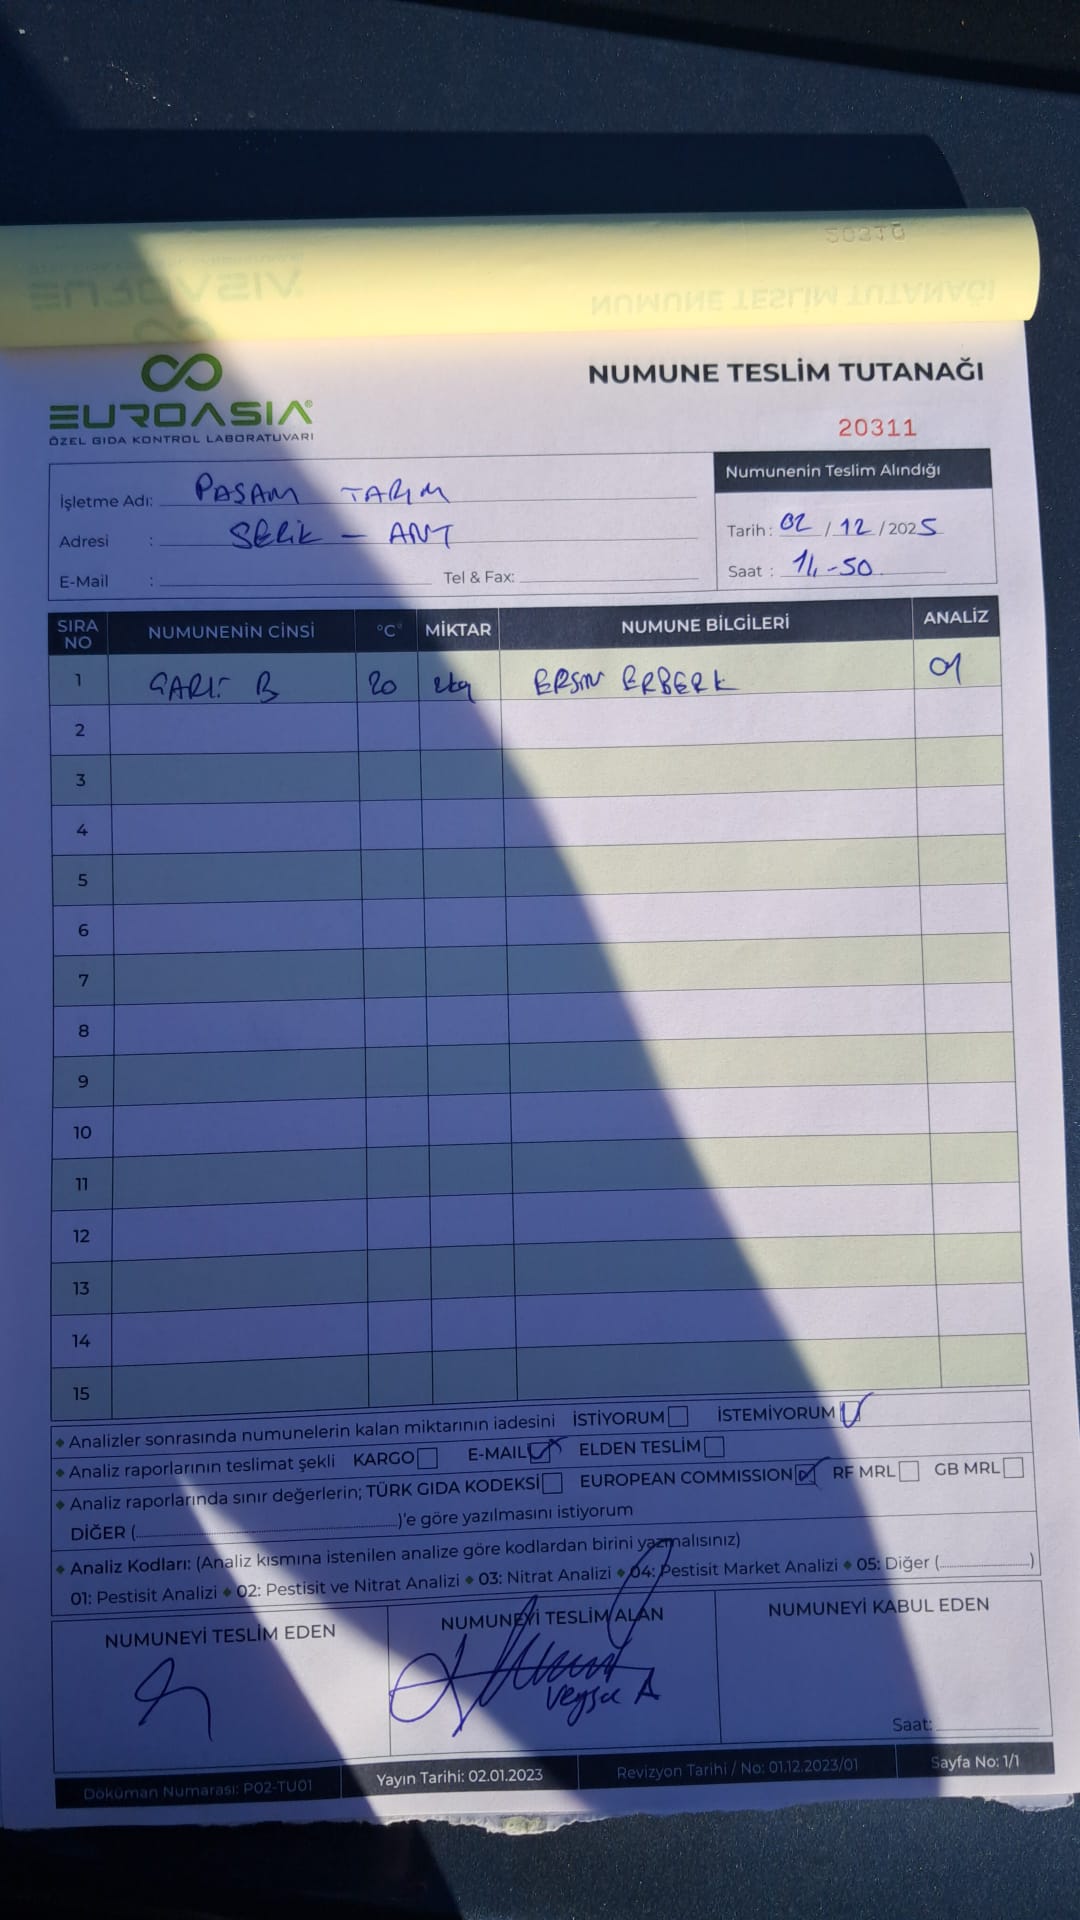 20310
NUMUNE TESLİM TUTANAĞI
EUROASIA
EUROASIA®
ÖZEL GIDA KONTROL LABORATUVARI
NUMUNE TESLİM TUTANAĞI
20311
İşletme Adı: PASAM TARIM
Adresi : SERİK - ANT
E-Mail : Tel & Fax:
Numunenin Teslim Alındığı
Tarih: 02 / 12 / 2025
Saat : 14-50
SIRA NO NUMUNENİN CİNSİ °C MİKTAR NUMUNE BİLGİLERİ ANALİZ
1 ÇARLİ B 20 2kg ERSİN ERBERK 01
2
3
4
5
6
7
8
9
10
11
12
13
14
15
◆ Analizler sonrasında numunelerin kalan miktarının iadesini İSTİYORUM İSTEMİYORUM
◆ Analiz raporlarının teslimat şekli KARGO E-MAIL ELDEN TESLİM
◆ Analiz raporlarında sınır değerlerin; TÜRK GIDA KODEKSİ EUROPEAN COMMISSION RF MRL GB MRL
DİĞER (..............................)'e göre yazılmasını istiyorum
◆ Analiz Kodları: (Analiz kısmına istenilen analize göre kodlardan birini yazmalısınız)
01: Pestisit Analizi ◆ 02: Pestisit ve Nitrat Analizi ◆ 03: Nitrat Analizi ◆ 04: Pestisit Market Analizi ◆ 05: Diğer (..............)
NUMUNEYİ TESLİM EDEN NUMUNEYİ TESLİM ALAN NUMUNEYİ KABUL EDEN
Veysel A
Saat:
Döküman Numarası: P02-TU01 Yayın Tarihi: 02.01.2023 Revizyon Tarihi / No: 01.12.2023/01 Sayfa No: 1/1